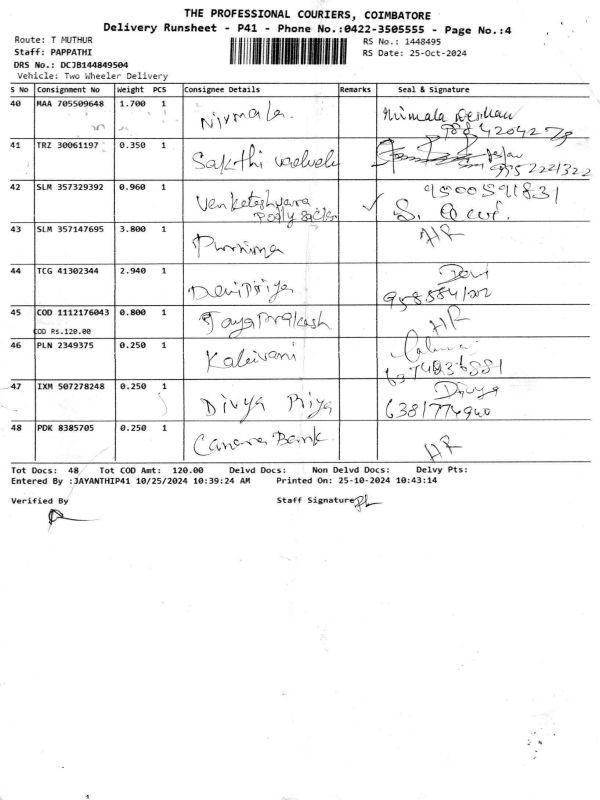 THE PROFESSIONAL COURIERS, COIMBATORE
Delivery Runsheet - P41 - Phone No.:0422-3505555 - Page No.:4
Route: T MUTHUR RS No.: 1448495
Staff: PAPPATHI RS Date: 25-Oct-2024
DRS No.: DCJB144849504
Vehicle: Two Wheeler Delivery
S No Consignment No Weight PCS Consignee Details Remarks Seal & Signature
40 MAA 705509648 1.700 1 Nirmala.
41 TRZ 30061197 0.350 1 Sakthi vadivelu
9952221322
42 SLM 357329392 0.960 1 Venkateshwara ✓ 9500591831
Poly sacks
43 SLM 357147695 3.800 1 Purnima
44 TCG 41302344 2.940 1 Devipriya Devi
45 COD 1112176043 0.800 1 Jayaprakash
COD Rs.120.00
46 PLN 2349375 0.250 1 Kalaivani
47 IXM 507278248 0.250 1 Divya Priya Divya
6381774940
48 PDK 8385705 0.250 1 Canara Bank.
Tot Docs: 48 Tot COD Amt: 120.00 Delvd Docs: Non Delvd Docs: Delvy Pts:
Entered By :JAYANTHIP41 10/25/2024 10:39:24 AM Printed On: 25-10-2024 10:43:14
Verified By Staff Signature